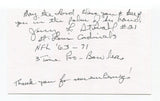 May the Lord bless you & keep
you in the palm of His hand,
Jerry Stovall #21
St. Louis Cardinals
NFL '63-71
3 time Pro-Bowler
Thank you for